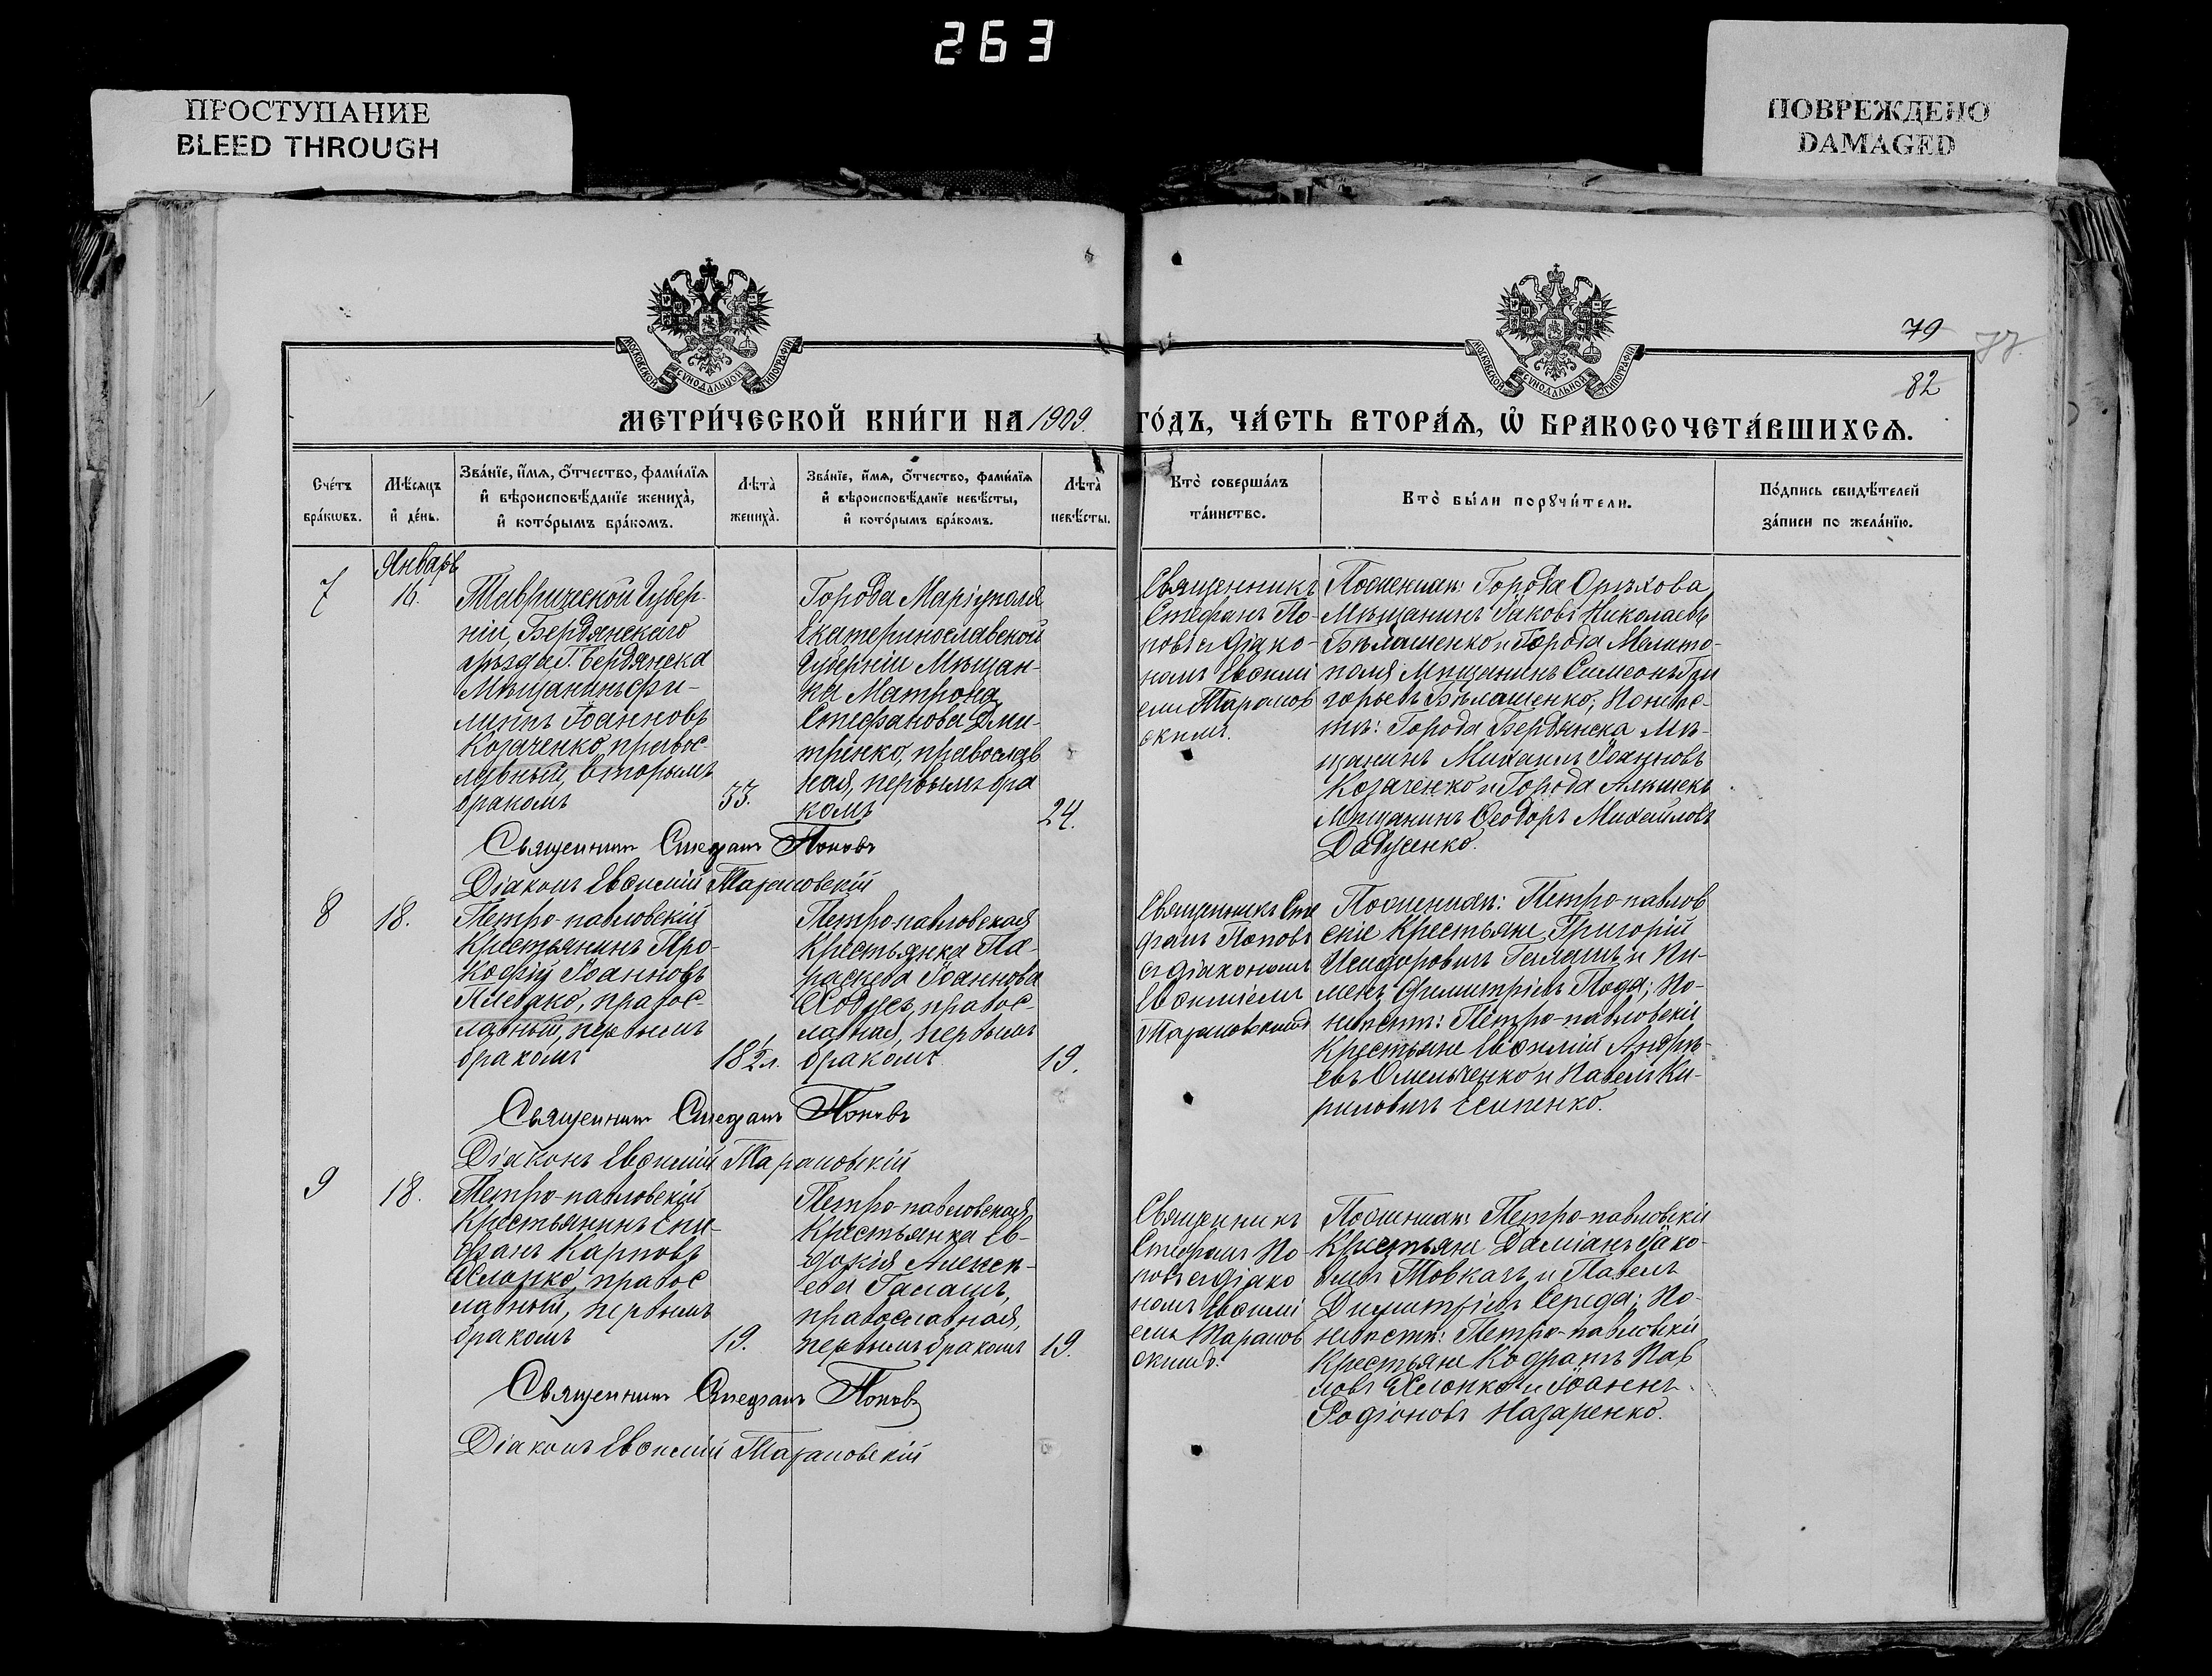 263
ПРОСТУПАНИЕ
BLEED THROUGH
ПОВРЕЖДЕНО
DAMAGED
МОСКОВСКОЙ СѴНОДАЛЬНОЙ ТИПОГРАФІИ
МОСКОВСКОЙ СѴНОДАЛЬНОЙ ТИПОГРАФІИ
79
77
82
МЕТРИ́ЧЕСКОЙ КНИ́ГИ НА 1909 ГО́ДЪ, ЧА́СТЬ ВТОРА́Ѧ, Ѡ҆ БРАКОСОЧЕТА́ВШИХСѦ.
Сче́тъ
бра́кѡвъ.
Мѣ́сѧцъ
и҆ де́нь.
Зва́нїе, и҆́мѧ, ѻ҆́тчество, фами́лїѧ
и҆ вѣроисповѣ́данїе жениха̀,
и҆ кото́рымъ бра́комъ.
Лѣ́та̀
жениха̀.
Зва́нїе, и҆́мѧ, ѻ҆́тчество, фами́лїѧ
и҆ вѣроисповѣ́данїе невѣ́сты,
и҆ кото́рымъ бра́комъ.
Лѣ́та̀
невѣ́сты.
Кто̀ соверша́лъ
та́инство.
Кто̀ бы́ли порꙋчи́тели.
По́дпись свидѣ́телей
за́писи по жела́нїю.
Январь
7
16.
Таврической Губер-
ніи, Бердянскаго
уѣзда г. Бердянска
Мѣщанинъ Фи-
липпъ Іоанновъ
Козаченко, правос-
лавный, вторымъ
бракомъ
33.
Города Маріуполя
Екатеринославской
Губерніи Мѣщан-
ка Матрона
Стефанова Дми-
тренко, православ
ная, первымъ бра
комъ
24.
Священникъ
Стефанъ По-
повъ съ діако-
номъ Евѳимі
емъ Тарановс
скимъ.
По женихѣ: Города Орѣхова
Мѣщанинъ Іаковъ Николаевъ
Бѣлашенко и Города Мелито-
поля Мѣщанинъ Симеонъ Гри
горьевъ Бѣлашенко; По невѣ-
стѣ: Города Бердянска Мѣ-
щанинъ Михаилъ Іоанновъ
Козаченко и Города Алешекъ
Мѣщанинъ Ѳеодоръ Михайловъ
Священникъ Стефанъ Поповъ
Діаконъ Евѳимій Тарановскій
8
18.
Петро-павловскій
Крестьянинъ Про-
кофій Іоанновъ
Плевако, правос-
лавный, первымъ
бракомъ
18 1/2 л.
Петро-павловская
Крестьянка Па-
раскева Іоаннова
правос-
лавная, первымъ
бракомъ
19.
Священникъ Сте
фанъ Поповъ
съ діакономъ
Евѳиміемъ
Тарановскимъ
По женихѣ: Петро-павлов
скіе Крестьяне Григорій
Исидоровъ Галашъ и Пи-
менъ Димитріевъ Пода; По
невѣстѣ: Петро-павловскіе
Крестьяне Евѳимій Андрѣ-
евъ Омельченко и Павелъ Ки-
риловъ Есипенко.
Священникъ Стефанъ Поповъ
Діаконъ Евѳимій Тарановскій
9
18.
Петро-павловскій
Крестьянинъ Епи-
фанъ Карповъ
Хлопко, правос
лавный, первымъ
бракомъ
19.
Петро-павловская
Крестьянка Ев-
докія Алексѣ-
ева Галашъ,
православная,
первымъ бракомъ
19.
Священникъ
Стефанъ По-
повъ съ діако
номъ Евѳимі
емъ Таранов
скимъ.
По женихѣ: Петро-павловскіе
Крестьяне Даміанъ Іако-
влевъ Товкачъ и Павелъ
Димитріевъ Середа; По
невѣстѣ: Петро-павловскіе
Крестьяне Кодратъ Пав
ловъ Хлопко и Іоаннъ
Родіоновъ Назаренко.
Священникъ Стефанъ Поповъ
Діаконъ Евѳимій Тарановскій